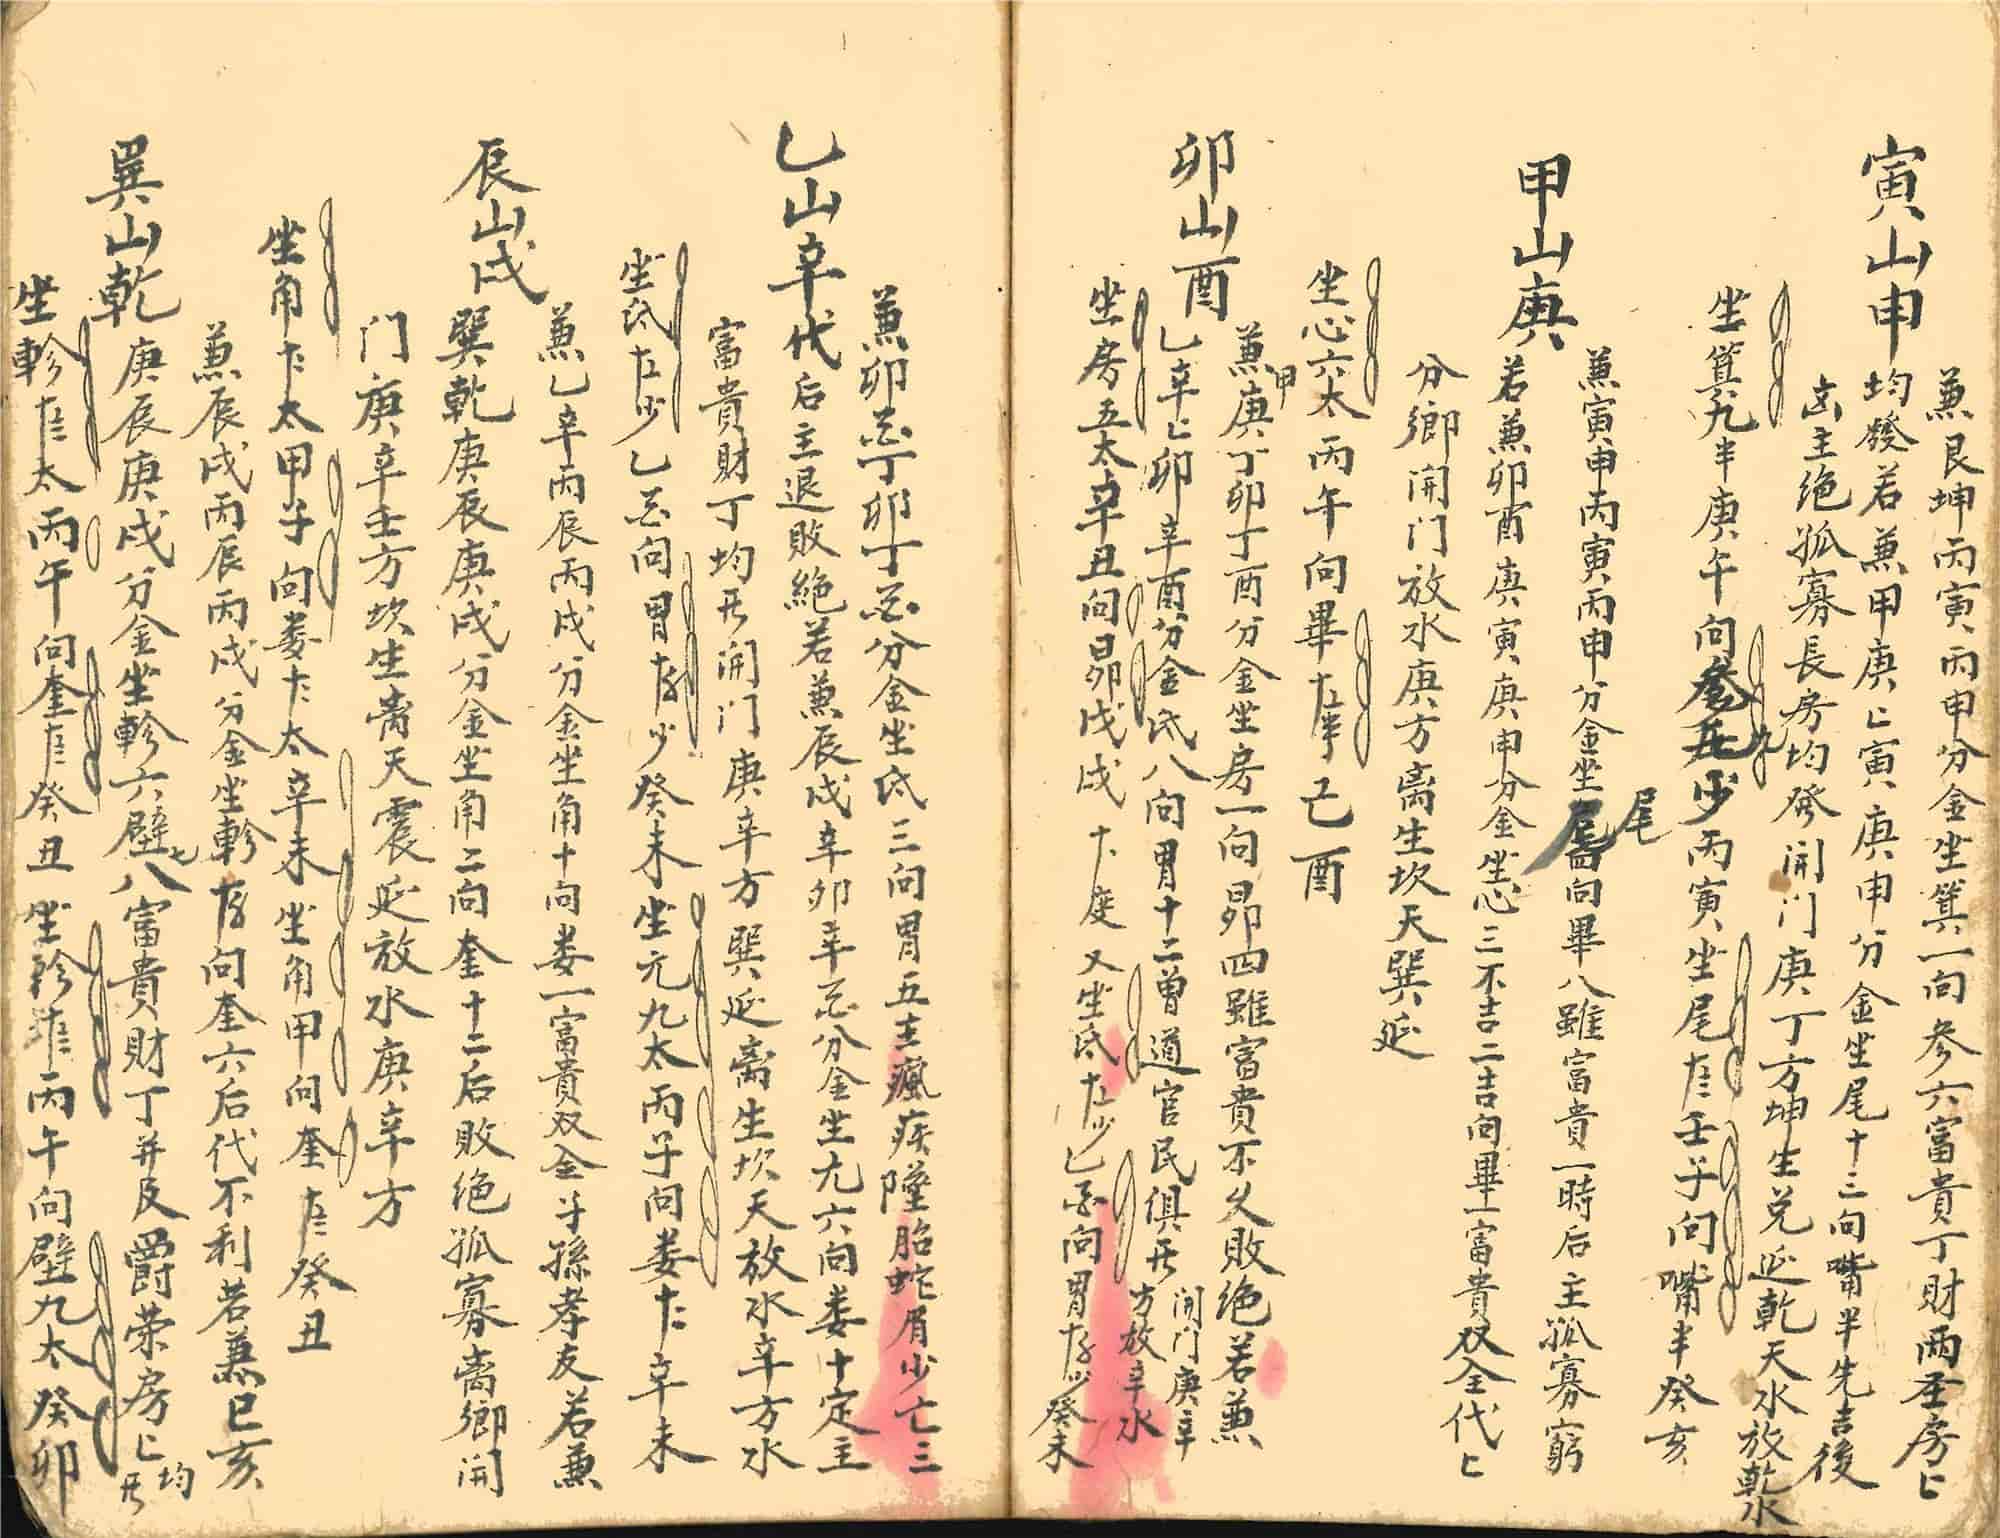 寅山申
兼艮坤丙寅丙申分金坐箕一向参六富貴丁財両全房上
均發若兼甲庚上寅庚申分金坐尾十三向嘴半先吉後
凶主绝孤寡長房均發開門庚丁方坤生兑延乾天水放乾水
坐箕九半庚午向参九少丙寅坐尾 壬子向嘴半癸亥
甲山庚
兼寅申丙寅丙申分金坐尾四向畢八雖富貴一時后主孤寡窮
若兼卯酉庚寅庚申分金坐心三不吉二吉向畢一富貴双全代上
分鄉開门放水庚方离生坎天巽延
坐心六太丙午向畢 己酉
卯山酉
兼甲庚丁卯丁酉分金坐房一向昴四雖富貴不久敗绝若兼
乙辛上卯辛酉分金氐八向胃十二曾道官民俱 開门庚辛
方放辛水
坐房五太辛丑向昴戊戌 十度 又坐氐 少乙 向胃 少癸未
兼卯 丁卯丁 分金坐氐三向胃五主瘋疾墮胎蛇 少亡三
乙山辛
代后主退敗絶若兼辰戌辛卯辛 分金坐亢六向娄十定主
富貴財丁均 開门庚辛方巽延离生坎天放水辛方水
坐氐 少乙 向胃 少癸未坐亢九太丙子向娄 辛未
辰山戌
兼乙辛丙辰丙戌分金坐角十向娄一富貴双全子孫孝友若兼
巽乾庚辰庚戌分金坐角二向奎十二后敗绝孤寡离鄉開
门庚辛壬方坎生离天震延放水庚辛方
坐角 太甲子向娄 太辛未坐角甲向奎 癸丑
巽山乾
兼辰戌丙辰丙戌分金坐軫 向奎六后代不利若兼巳亥
庚辰庚戌分金坐軫六壁七八富貴財丁并及爵荣房上均
坐軫 太丙午向奎 癸丑坐軫 丙午向壁九太癸卯